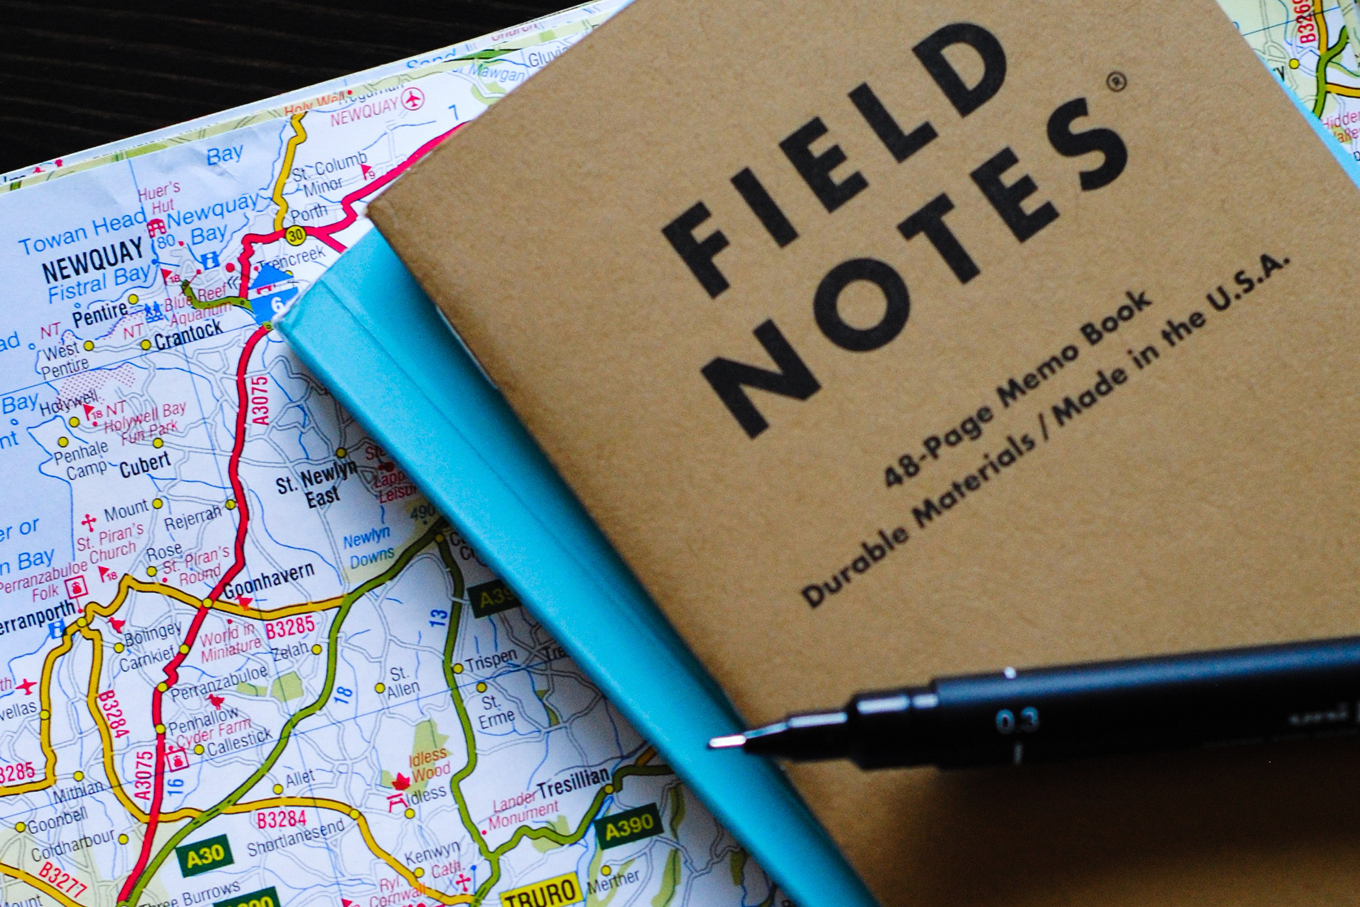 FIELD
NOTES®
48-Page Memo Book
Durable Materials / Made in the U.S.A.
0.3
Holy Well
NEWQUAY
7
Bay
St. Columb
Minor
9
Huer's
Hut
Towan Head
Newquay
Bay
Porth
30
80
NEWQUAY
Fistral Bay
18
Trencreek
Blue Reef
Aquarium
6
Pentire
NT
NT
West
Pentire
Crantock
A3075
Bay
Holywell
18
NT
Holywell Bay
Fun Park
Penhale
Camp
Cubert
St. Newlyn
East
490
Mount
Rejerrah
St. Piran's
Church
Newlyn
Downs
Rose
St. Piran's
Round
Perranzabuloe
Folk
18
Goonhavern
B3285
13
Bolingey
World in
Miniature
Carnkief
Zelah
Trispen
Perranzabuloe
St.
Allen
18
St.
Erme
B3284
Penhallow
Cyder Farm
Callestick
A3075
16
Idless
Wood
Idless
Mithian
Allet
Tresillian
Lander
Monument
Goonbell
B3284
A390
Coldharbour
Shortlanesend
A30
Kenwyn
Cath.
B3277
Merther
Three Burrows
TRURO
Mount
Mawgan